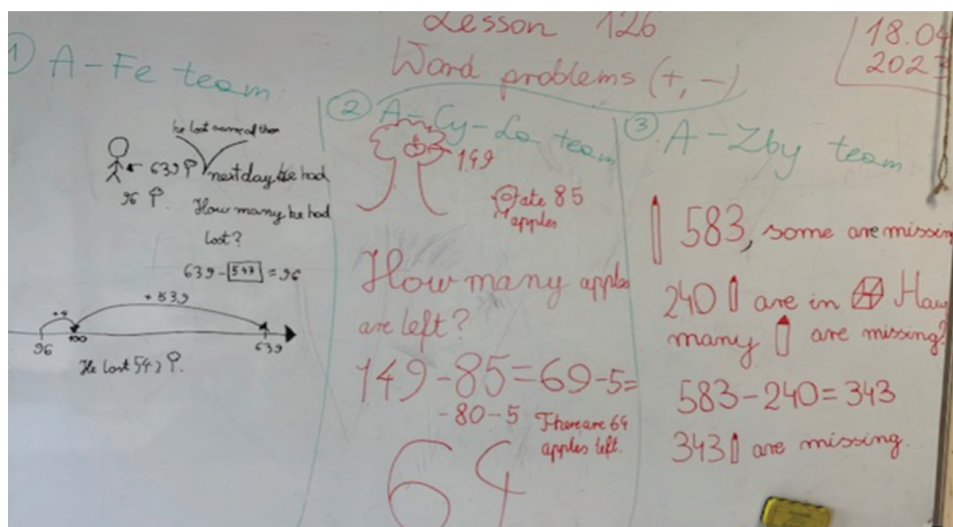 Lesson 126
Word problems (+, -)
18.04
2023
1) A-Fe team
he lost some of them
639
next day, he had
96
How many he had
lost?
639 - 543 = 96
+4
+539
96
100
639
He lost 543
2 A-Cy-La team
149
ate 85
apples
How many apples
are left?
149-85=69-5=
-80-5
There are 64
apples left.
64
3 A-Zby team
583, some are missing
240 are in How
many are missing?
583-240=343
343 are missing.